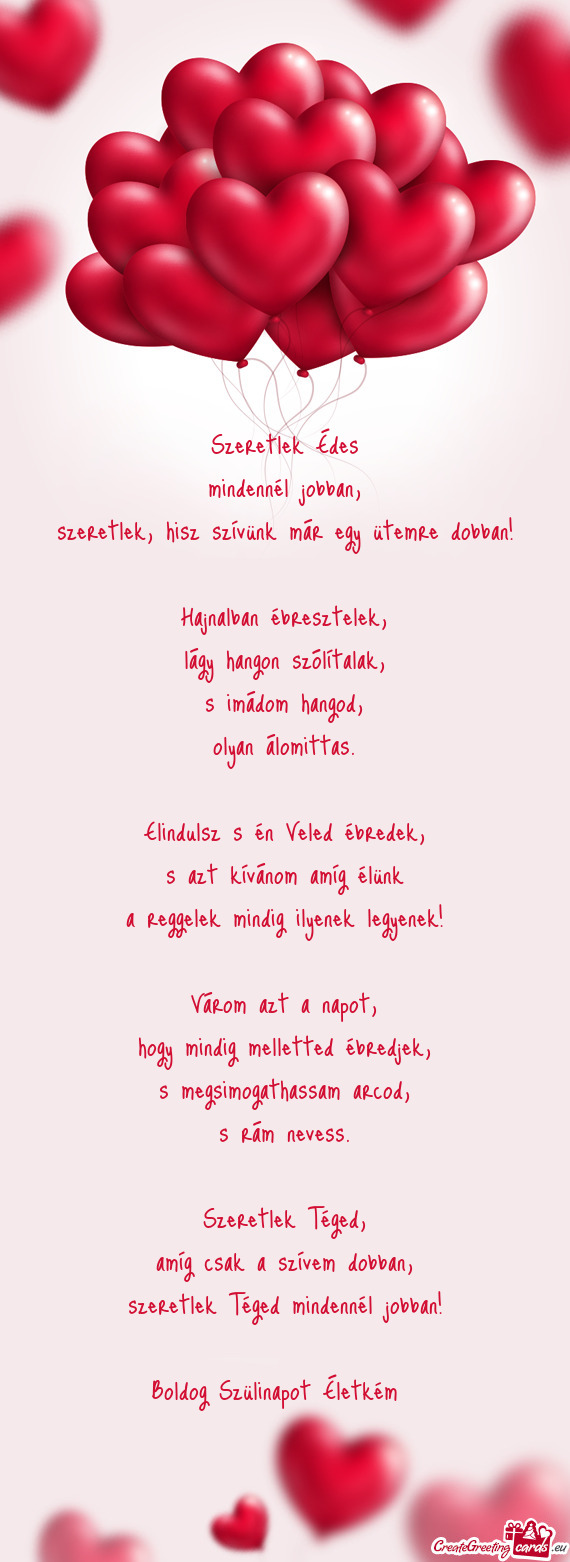 Szeretlek Édes
mindennél jobban,
szeretlek, hisz szívünk már egy ütemre dobban!
Hajnalban ébresztelek,
lágy hangon szólítalak,
s imádom hangod,
olyan álomittas.
Elindulsz s én Veled ébredek,
s azt kívánom amíg élünk
a reggelek mindig ilyenek legyenek!
Várom azt a napot,
hogy mindig melletted ébredjek,
s megsimogathassam arcod,
s rám nevess.
Szeretlek Téged,
amíg csak a szívem dobban,
szeretlek Téged mindennél jobban!
Boldog Szülinapot Életkém
CreateGreetingcards.eu